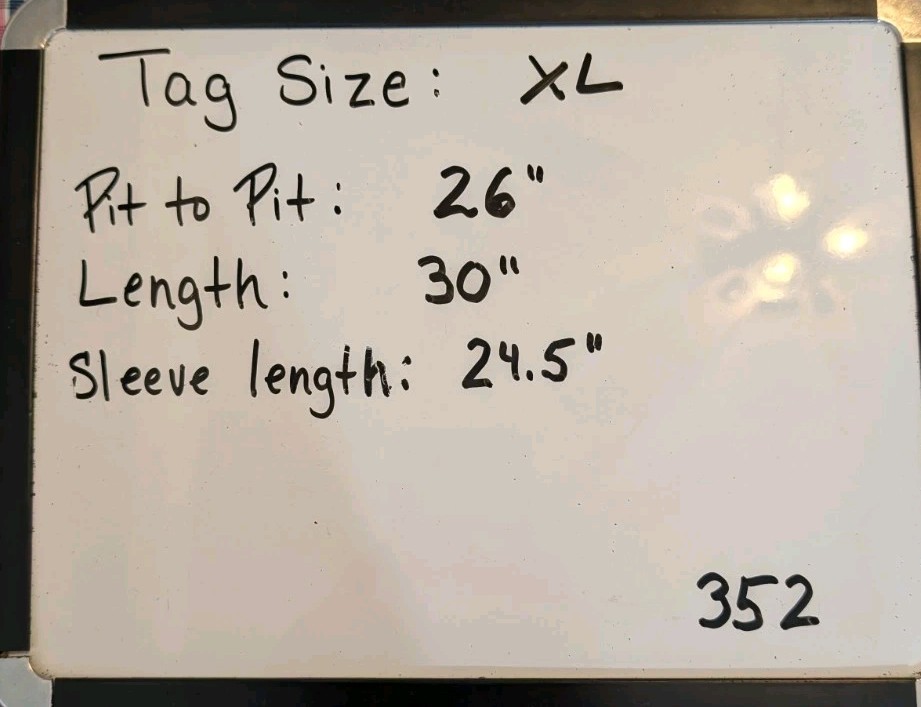 Tag Size: XL
Pit to Pit: 26"
Length: 30"
Sleeve length: 24.5"
352